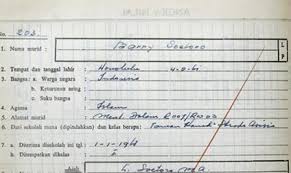 No. 203.
1. Nama murid : Barry Soetoro L
P
2. Tempat dan tanggal lahir : Honolulu 4-8-61
3. Bangsa : a. Warga negara : Indonesia
b. Keturunan asing :
c. Suku bangsa :
4. Agama : Islam
5. Alamat murid : Ment Dalam R007/Rw03
6. Dari sekolah mana (dipindahkan) dan kelas berapa :
7. a. Diterima disekolah ini tgl. : 1-1-1968
b. Ditempatkan dikelas : I
L. Soetoro M.A.